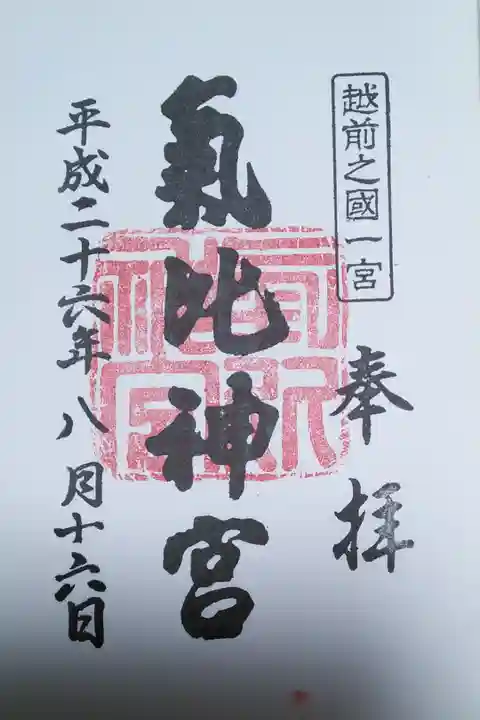 越前之國一宮
奉拝
氣比神宮
平成二十六年八月十六日